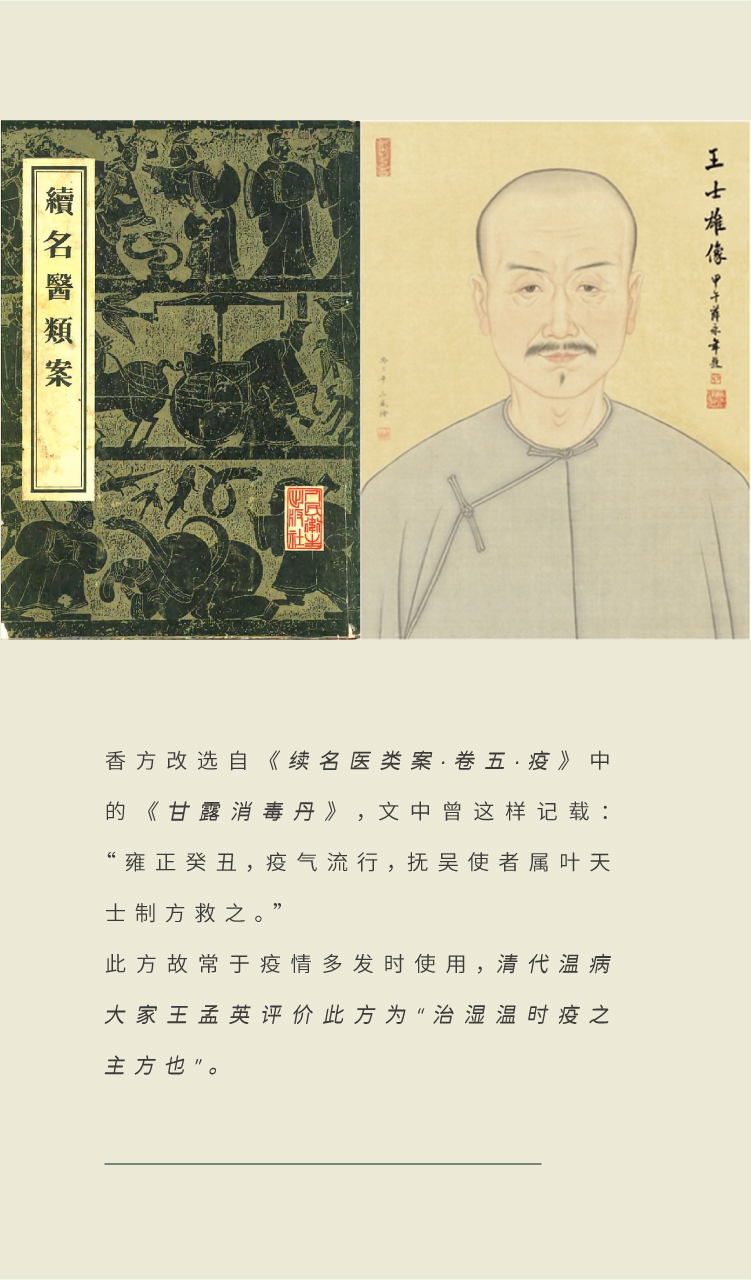 續名醫類案
人民衛生出版社
王士雄像
香方改选自《续名医类案·卷五·疫》中
的《甘露消毒丹》，文中曾这样记载：
“雍正癸丑，疫气流行，抚吴使者属叶天
士制方救之。”
此方故常于疫情多发时使用，清代温病
大家王孟英评价此方为“治湿温时疫之
主方也”。